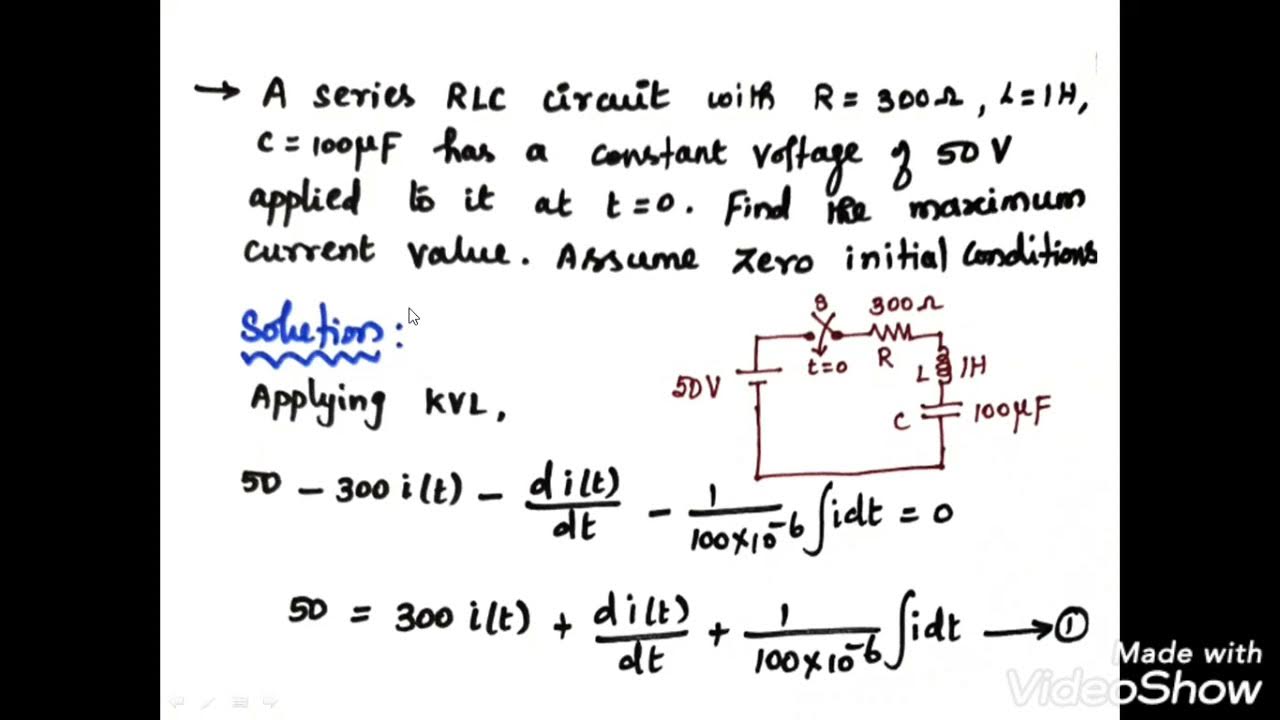 → A series RLC circuit with R = 300Ω, L = 1H,
C = 100μF has a constant voltage of 50 V
applied to it at t = 0. Find the maximum
current value. Assume zero initial conditions
Solution:
S
300Ω
t=0
R
L
1H
50V
C
100μF
Applying KVL,
50 - 300 i(t) - d i(t)/dt - 1/100×10^-6 ∫idt = 0
50 = 300 i(t) + d i(t)/dt + 1/100×10^-6 ∫idt → ①
Made with
VideoShow